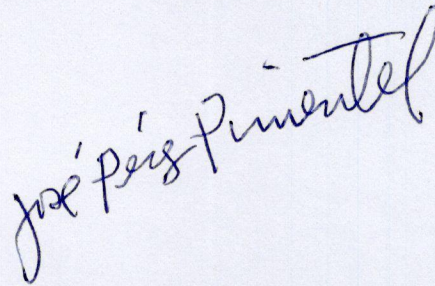 José Pérez Pimentel